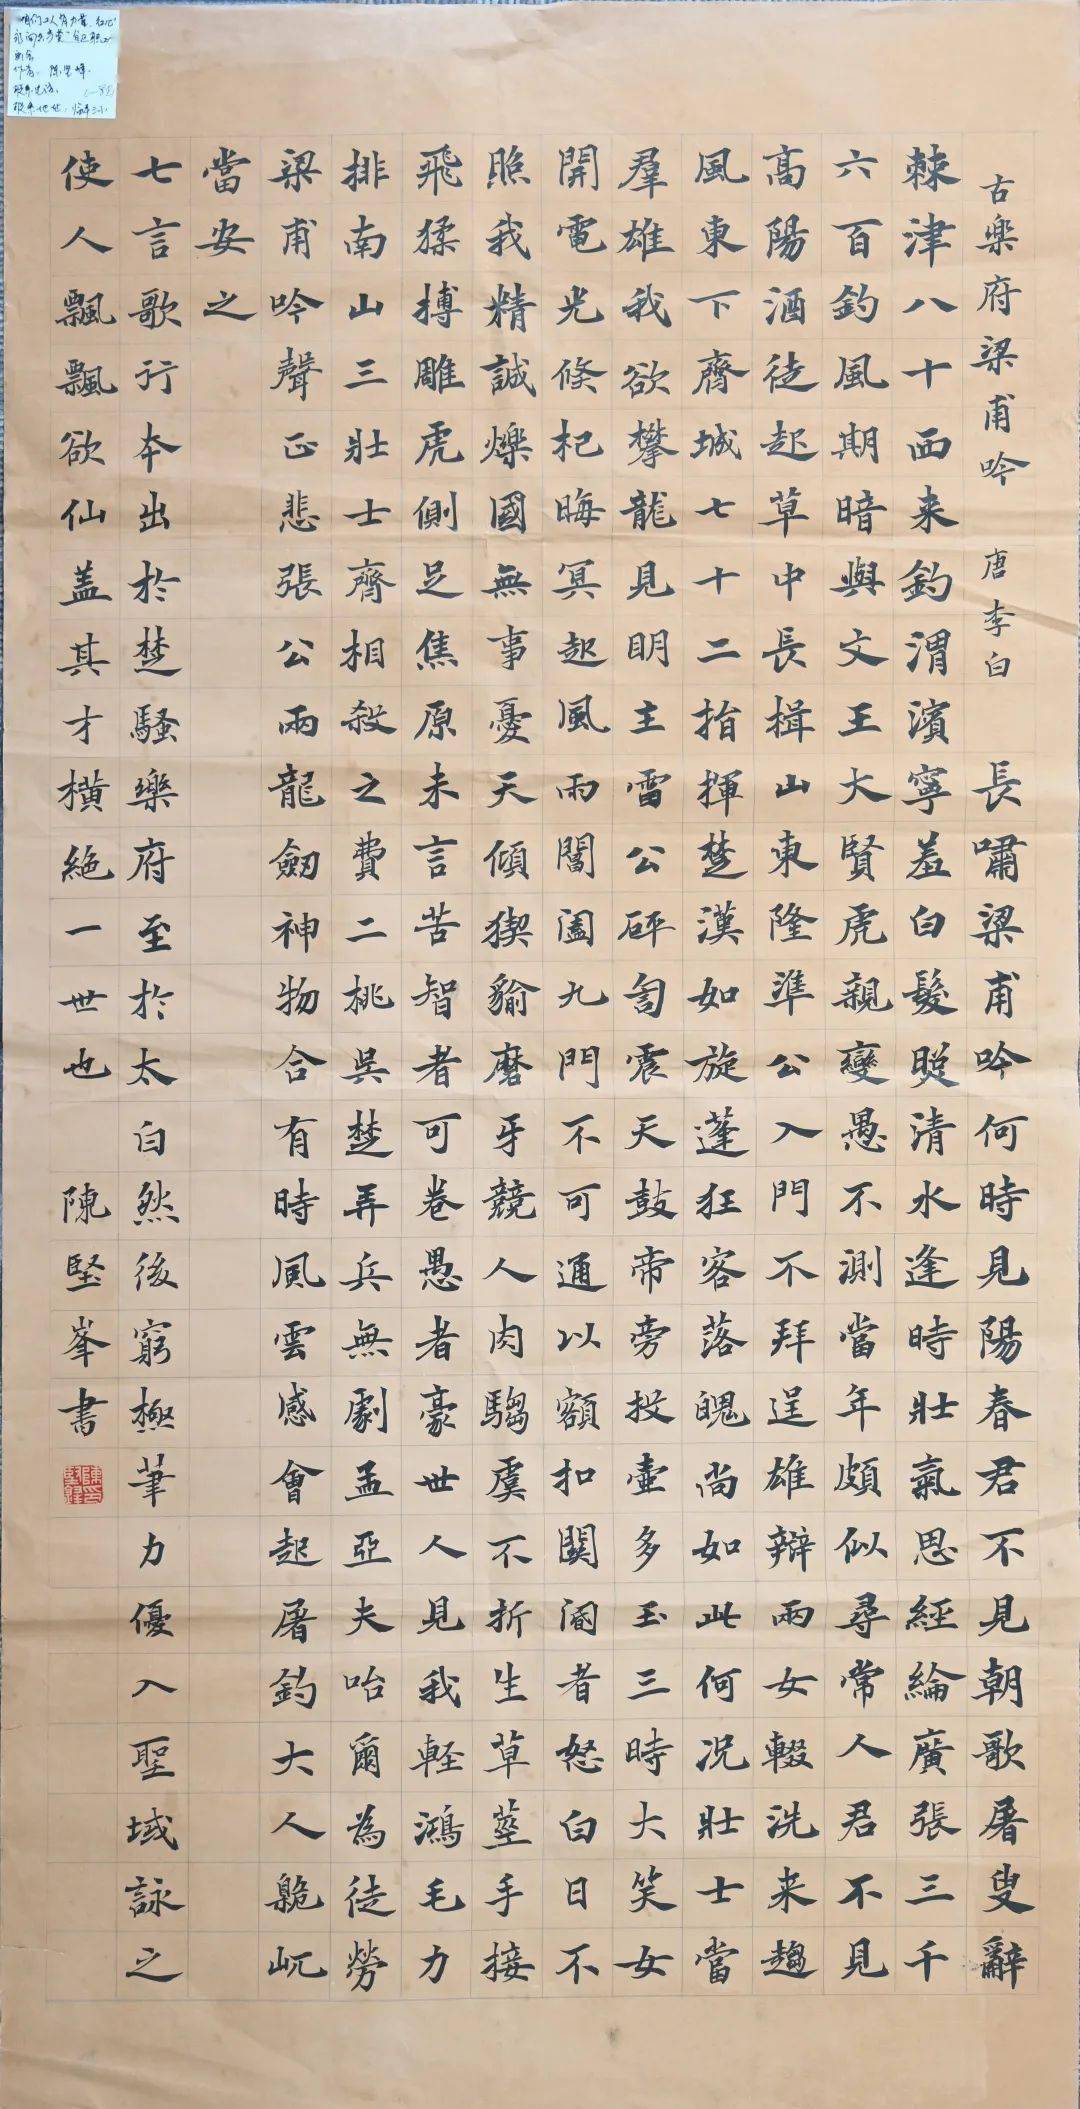 古楽府梁甫吟 唐李白 長嘯梁甫吟何時見陽春君不見朝歌屠叟辭
棘津八十西来釣渭濱寧羞白髮照清水逢時壯氣思經綸廣張三千
六百釣風期暗與文王大賢虎親變愚不測當年頗似尋常人君不見
高陽酒徒起草中長揖山東隆準公入門不拜逞雄辯兩女輟洗来趨
風東下齊城七十二指揮楚漢如旋蓬狂客落魄尚如此何況壯士當
羣雄我欲攀龍見明主雷公砰訇震天鼓帝旁投壺多玉三時大笑女
開電光倏杞晦冥起風雨閶闔九門不可通以額扣關閽者怒白日不
照我精誠爍國無事憂天傾猰貐磨牙競人肉騶虞不折生草莖手接
飛猱搏雕虎側足焦原未言苦智者可卷愚者豪世人見我輕鴻毛力
排南山三壯士齊相殺之費二桃吳楚弄兵無劇孟亞夫咍爾為徒勞
梁甫吟聲正悲張公兩龍劍神物合有時風雲感會起屠釣大人臲屼
當安之
七言歌行本出於楚騷樂府至於太白然後窮極筆力優入聖域詠之
使人飄飄欲仙盖其才橫絕一世也 陳堅峯書
咱们工人有力量
作者：陈坚峰